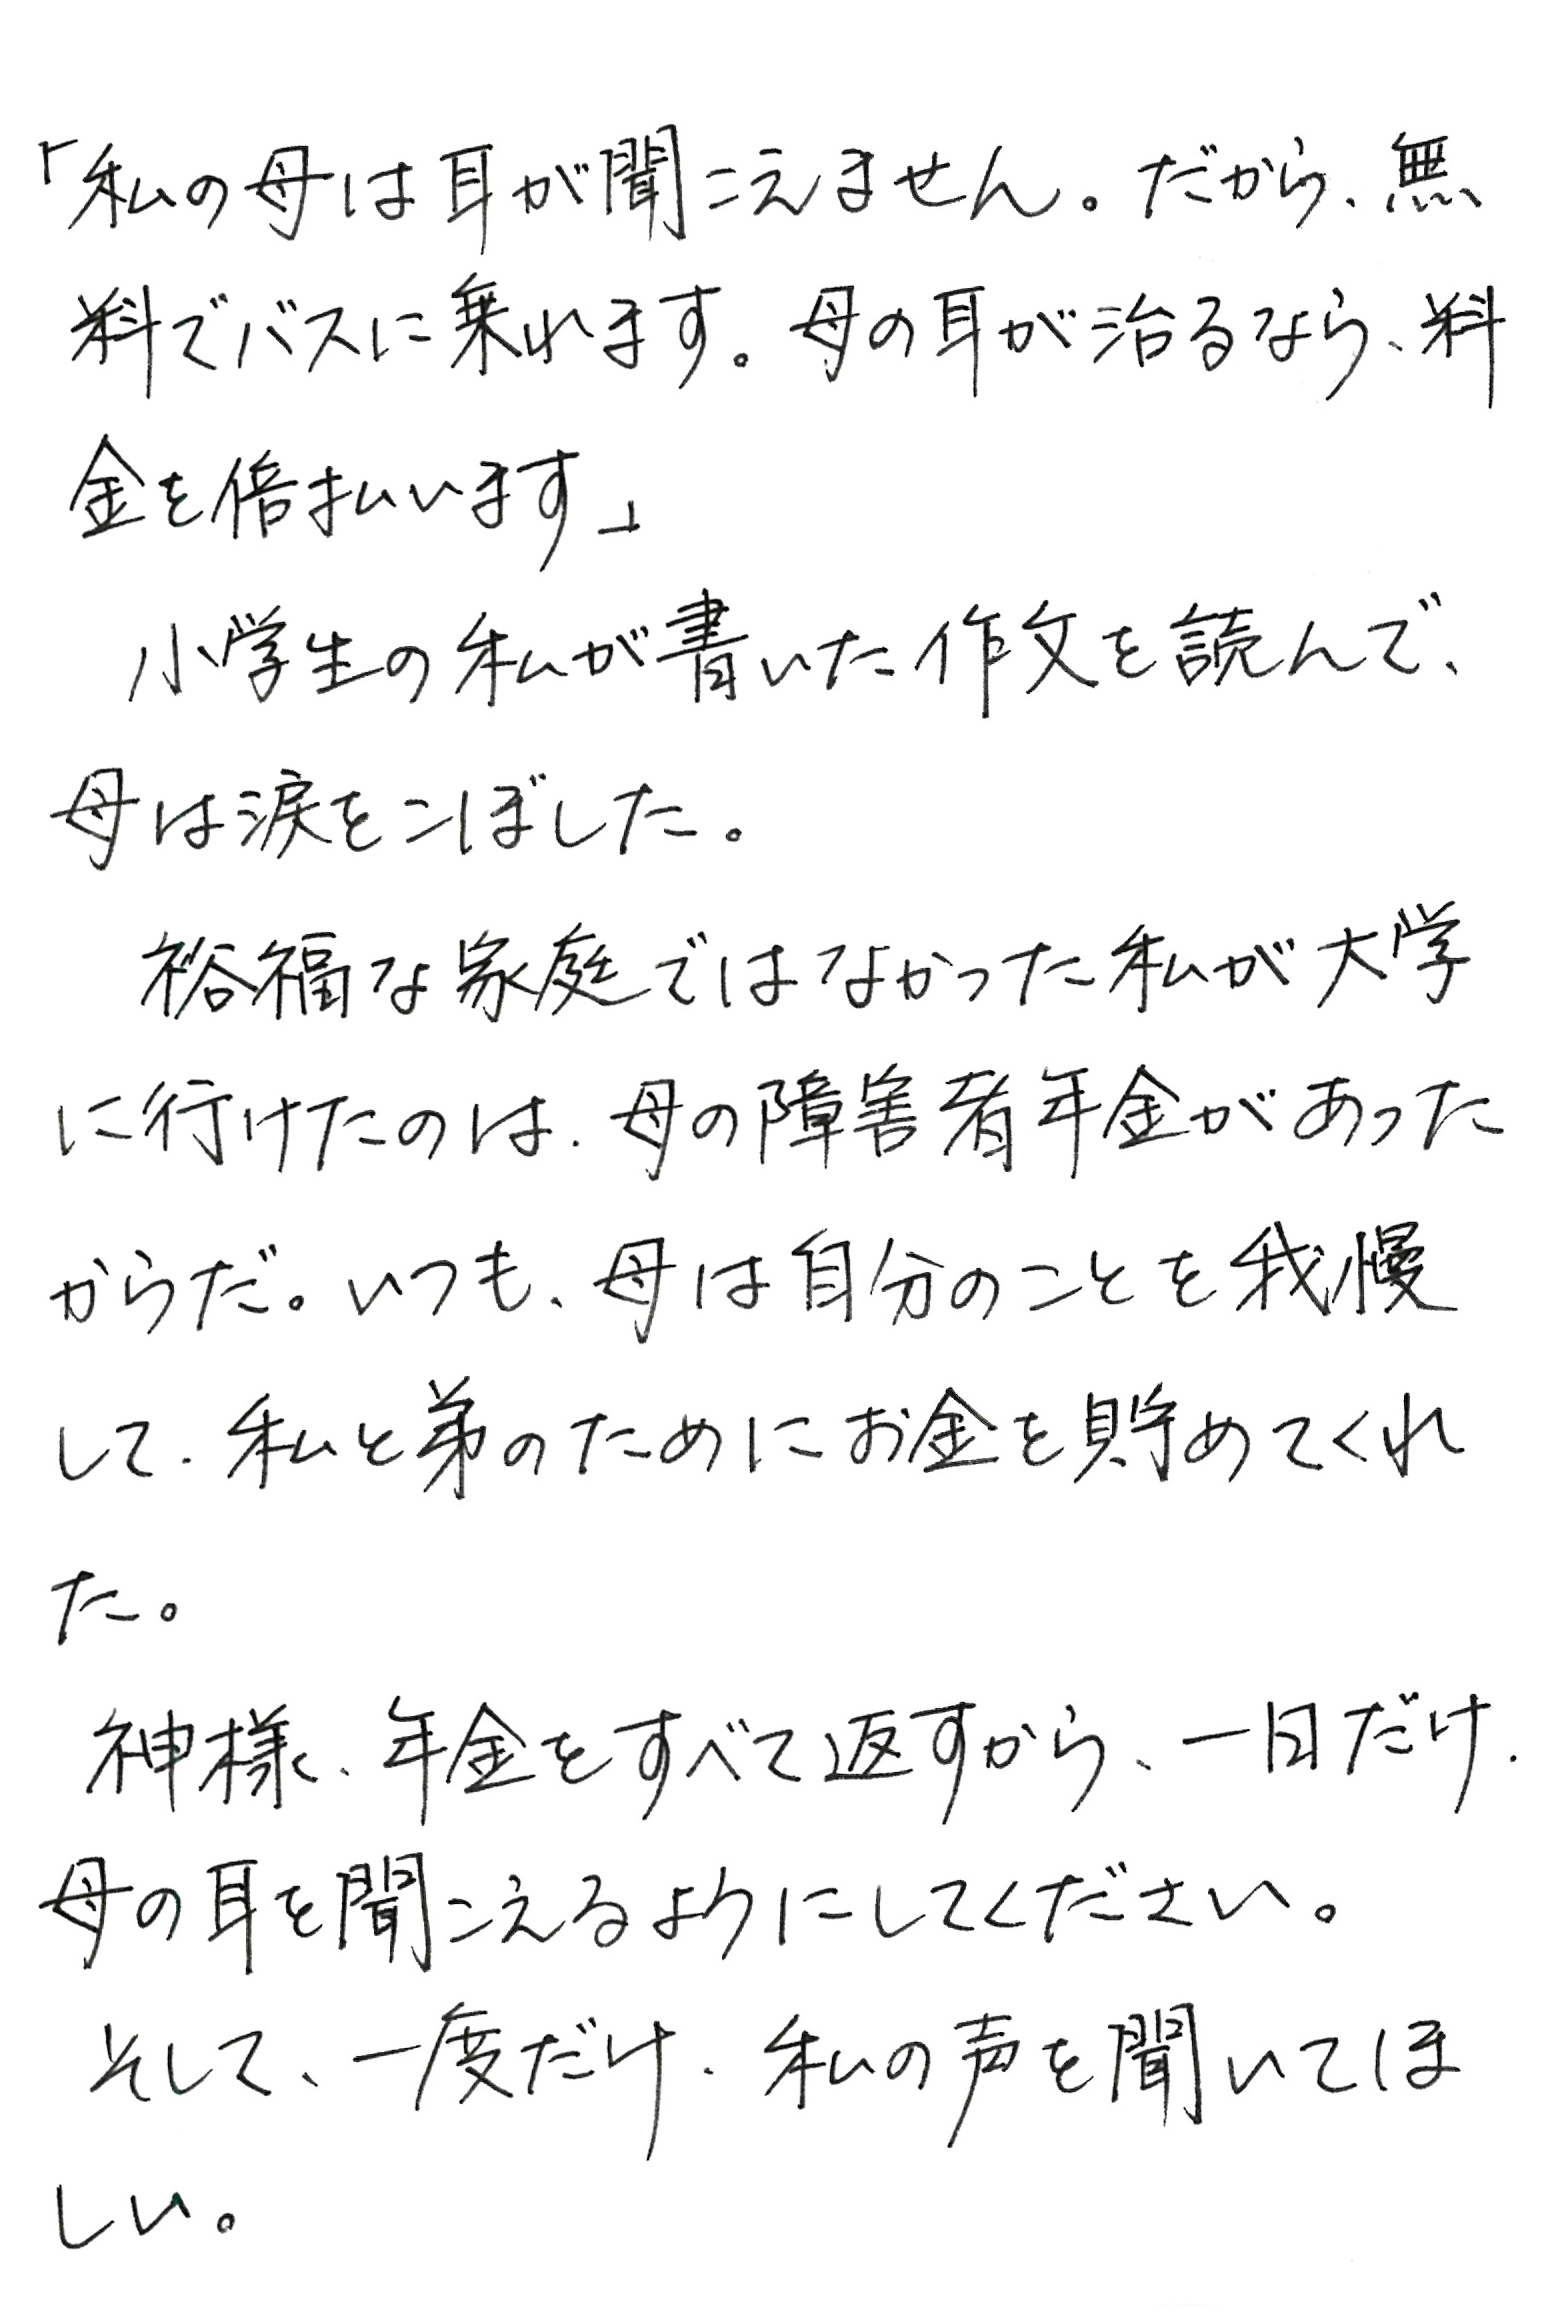 「私の母は耳が聞こえません。だから、無
料でバスに乗れます。母の耳が治るなら、料
金を倍払います」
小学生の私が書いた作文を読んで、
母は涙をこぼした。
裕福な家庭ではなかった私が大学
に行けたのは、母の障害者年金があった
からだ。いつも、母は自分のことを我慢
して、私と弟のためにお金を貯めてくれ
た。
神様、年金をすべて返すから、一日だけ、
母の耳を聞こえるようにしてください。
そして、一度だけ、私の声を聞いてほ
しい。